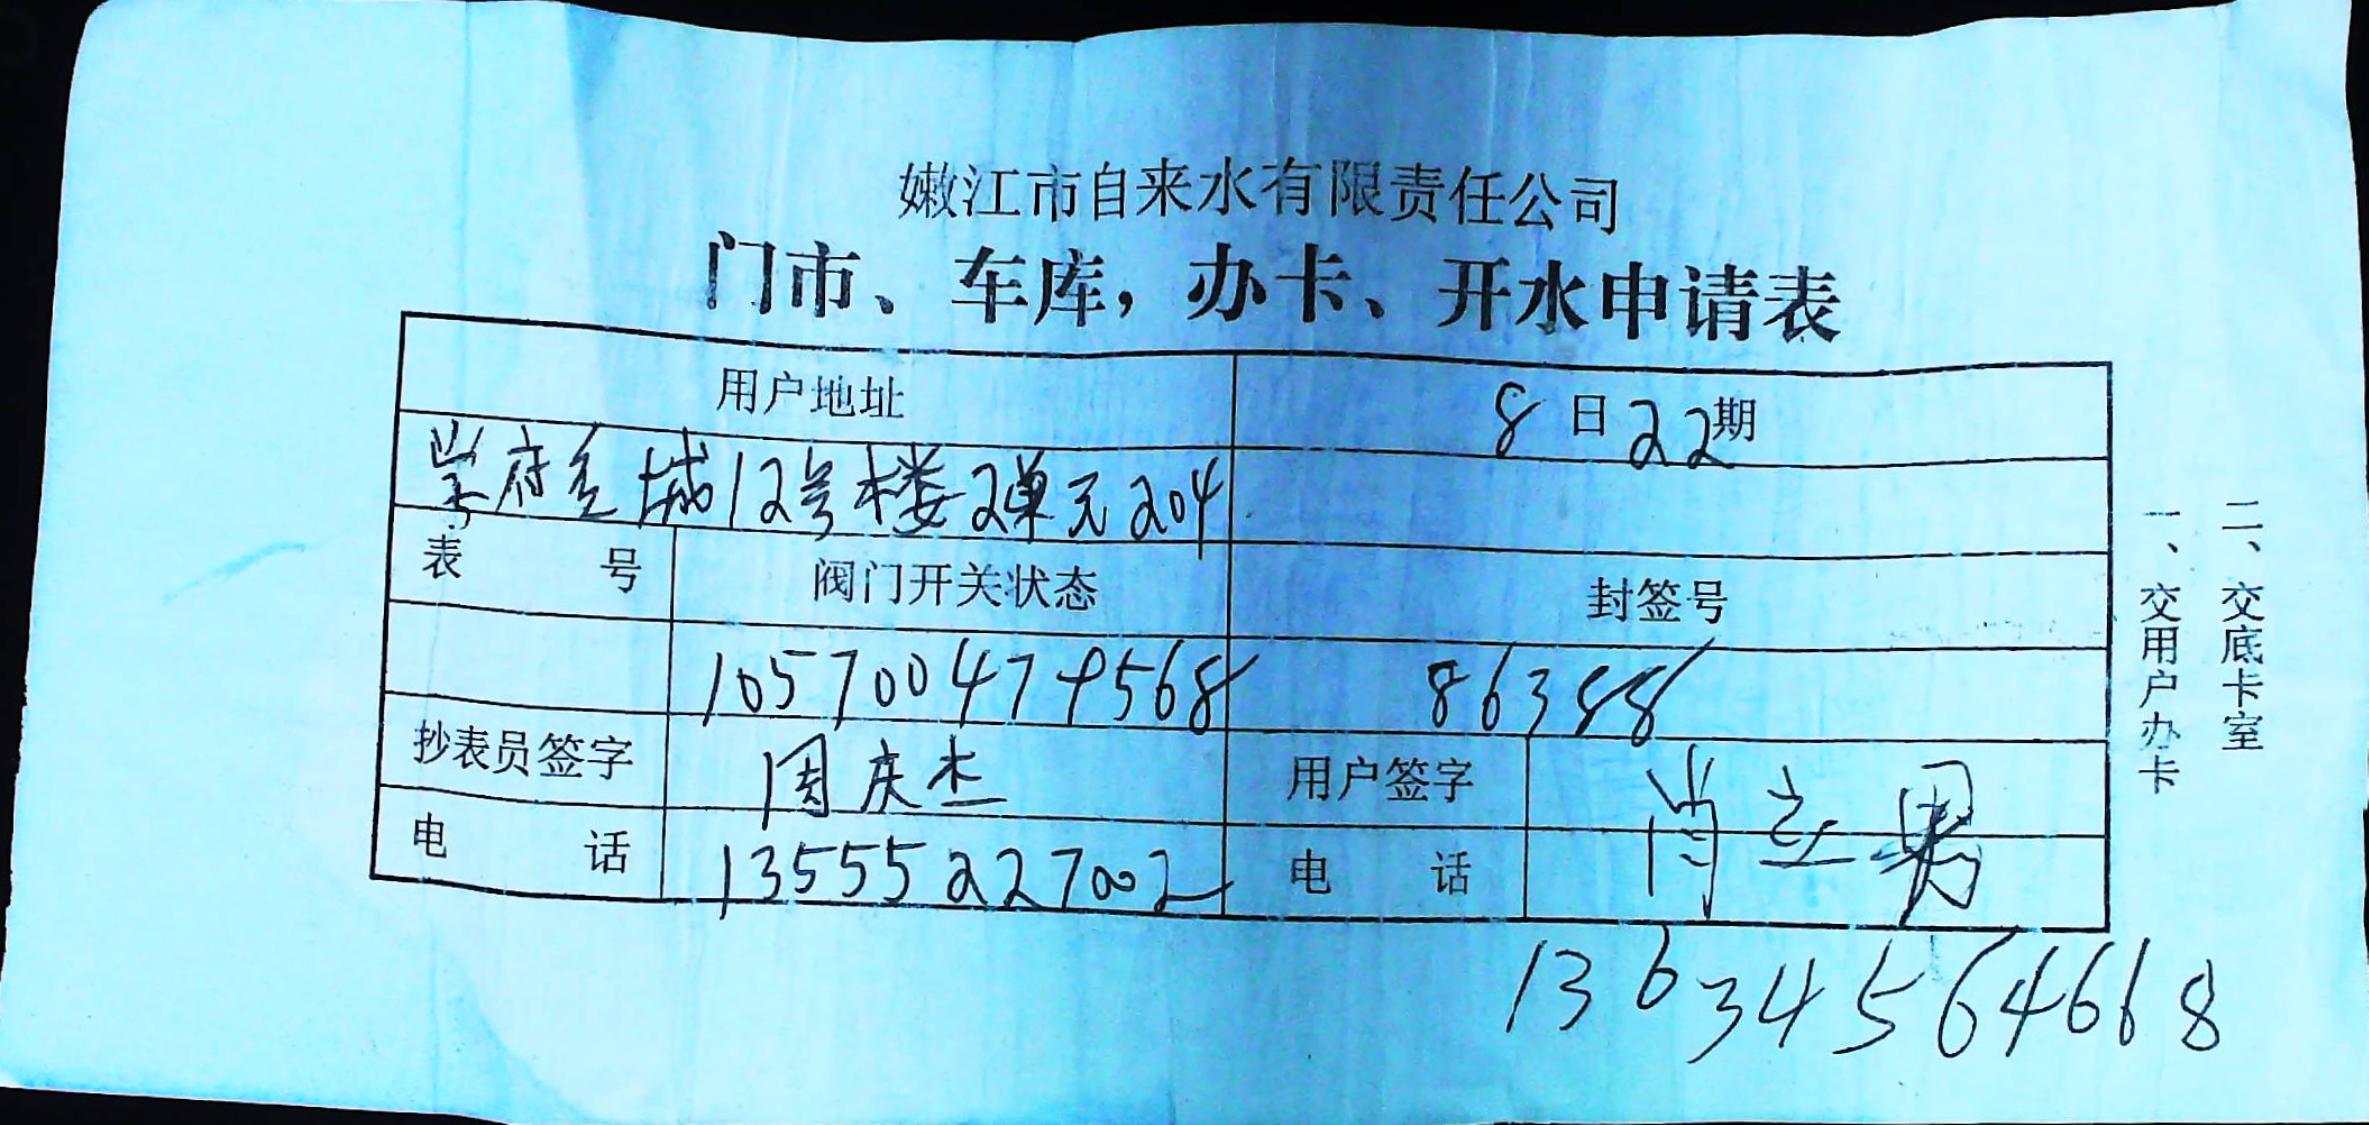 嫩江市自来水有限责任公司
门市、车库，办卡、开水申请表
用户地址 8日22期
崇府金城12号楼2单元204
表 号 阀门开关状态 封签号
105700479568 86388
抄表员签字 周庆杰 用户签字 肖立男
电 话 13555227002 电 话
13634564668
一、交用户办卡
二、交底卡室